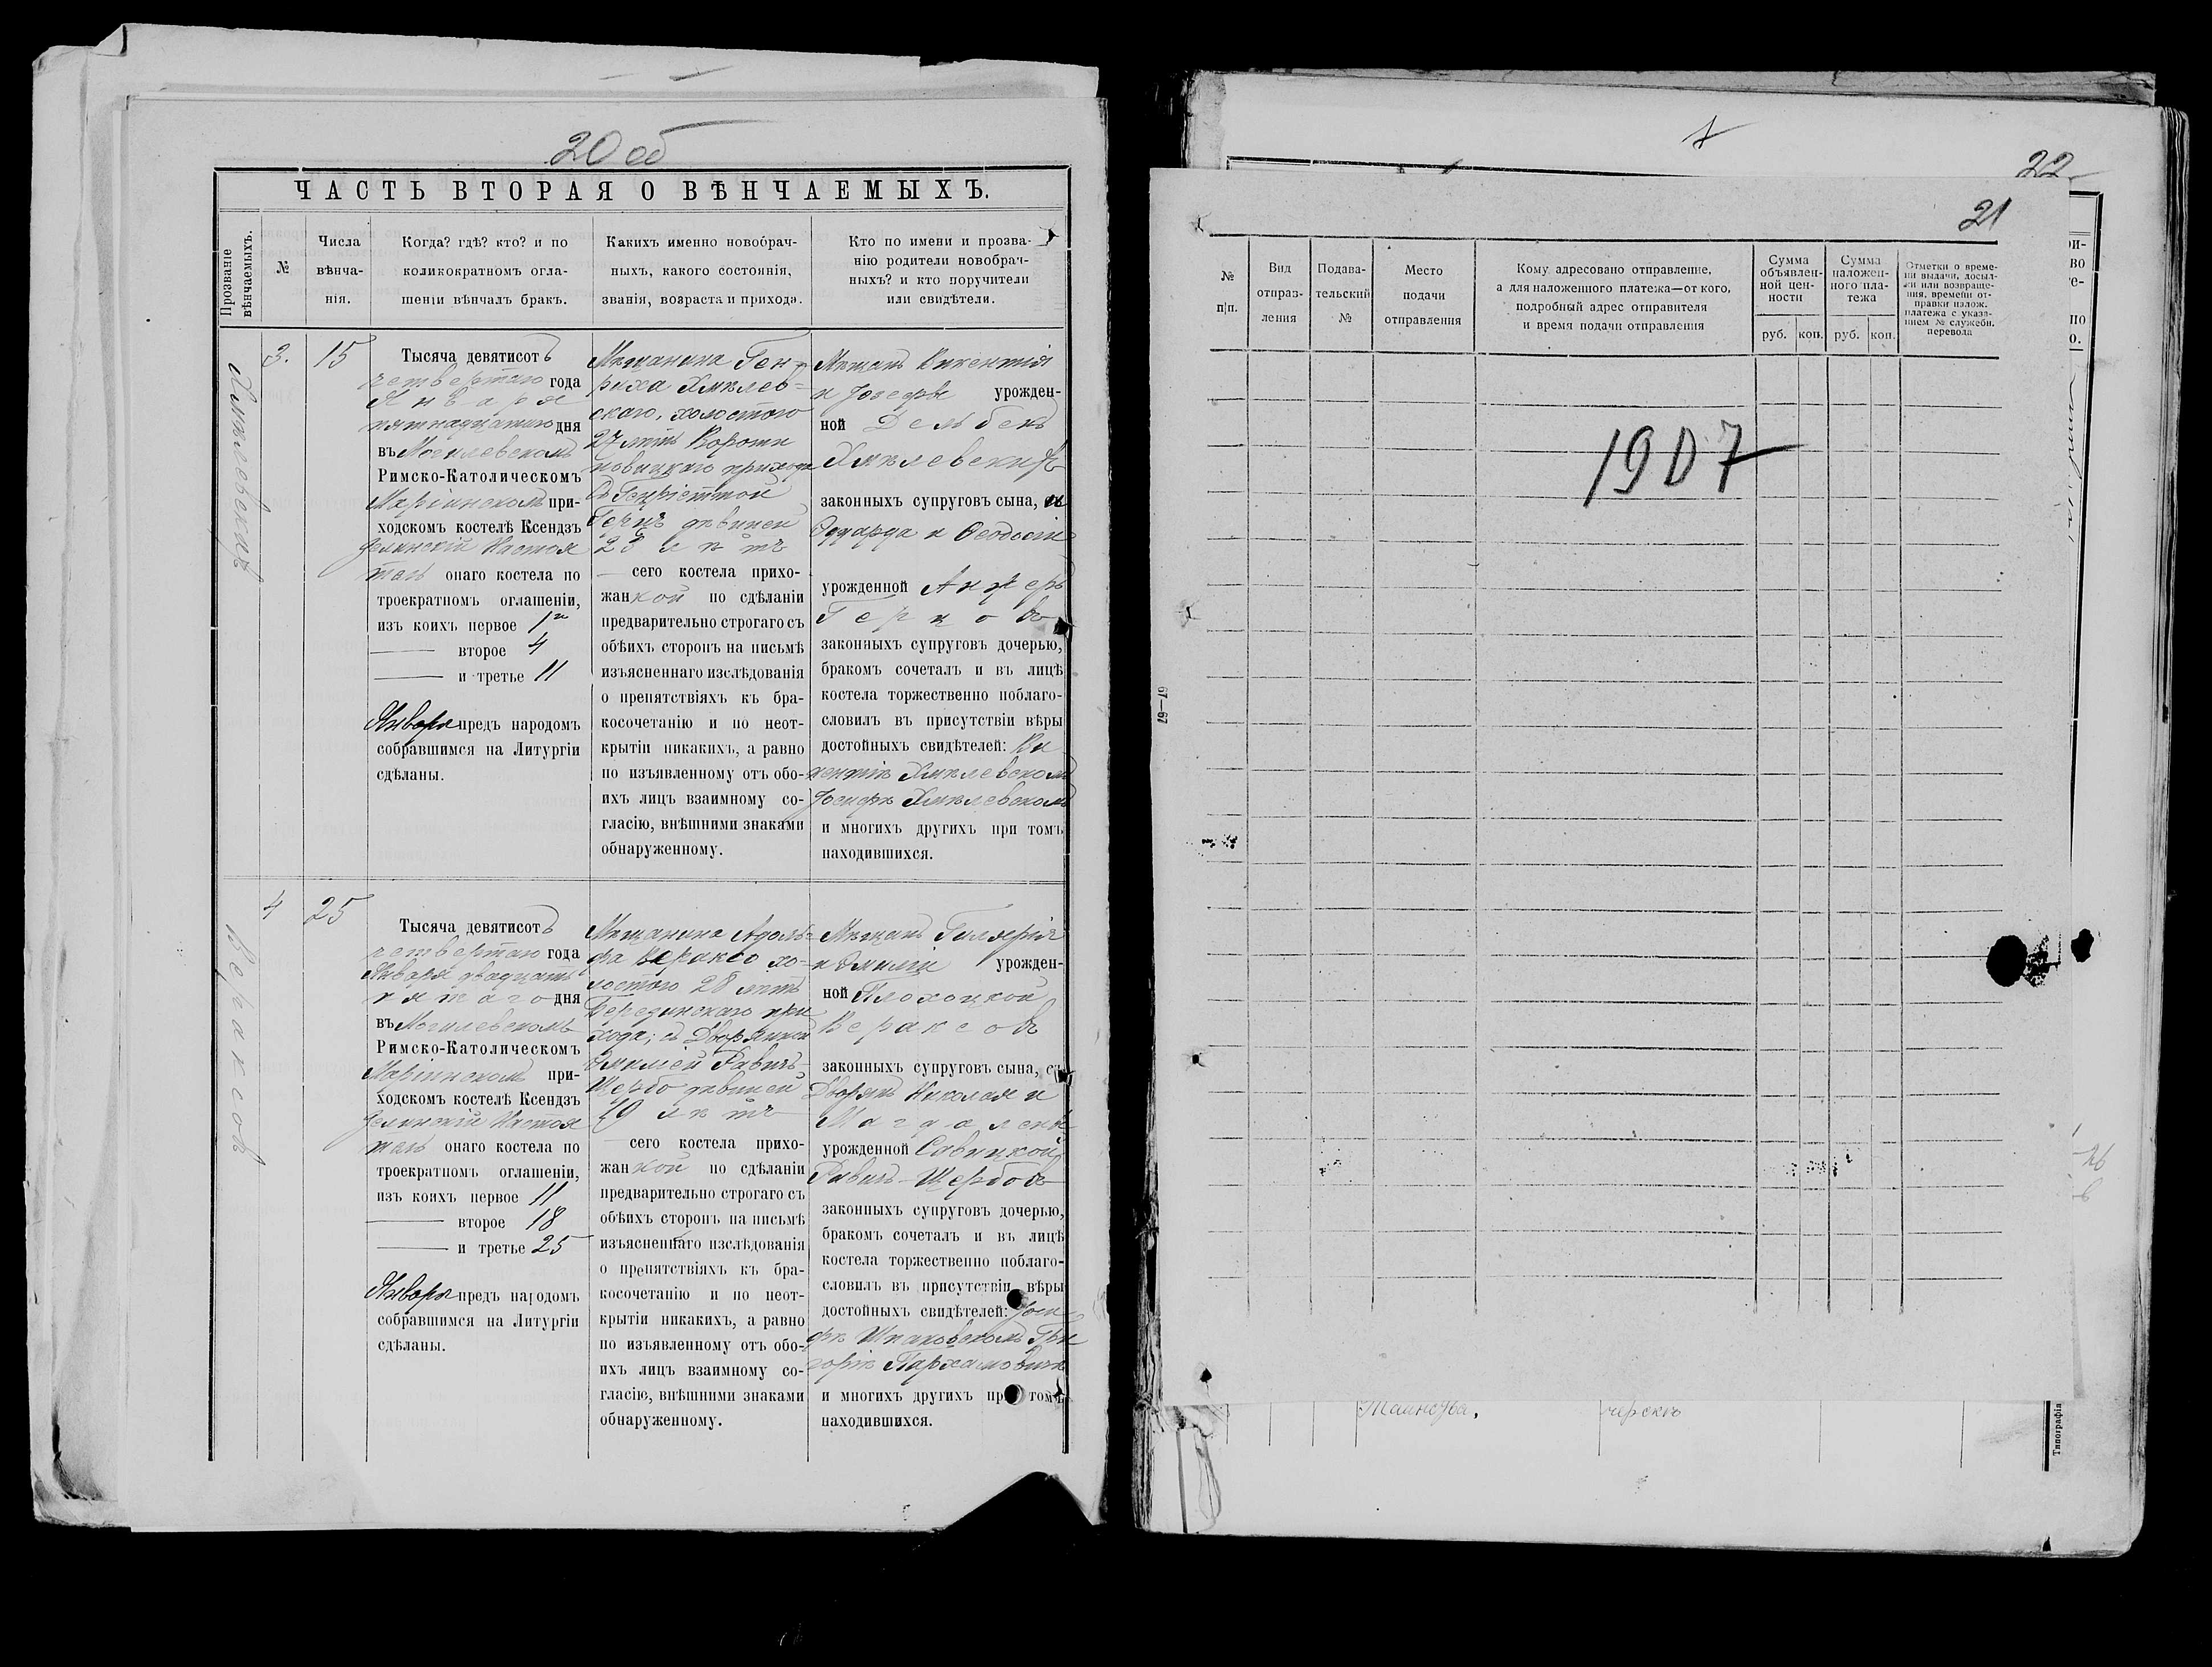 20 об
ЧАСТЬ ВТОРАЯ О ВѢНЧАЕМЫХЪ.
Прозваніе
вѣнчаемыхъ.
№
Числа
вѣнча-
нія.
Когда? гдѣ? кто? и по
коликократномъ огла-
шеніи вѣнчалъ бракъ.
Какихъ именно новобрач-
ныхъ, какого состоянія,
званія, возраста и прихода.
Кто по имени и прозва-
нію родители новобрач-
ныхъ? и кто поручители
или свидѣтели.
Хмѣлевскихъ
3.
15
Тысяча девятисотъ
четвертаго года
Января
пятнадцатаго дня
въ Могилевскомъ
Римско-Католическомъ
Маріинскомъ при-
ходскомъ костелѣ Ксендзъ
Настоя
тель онаго костела по
троекратномъ оглашеніи,
изъ коихъ первое 1го
второе 4
и третье 11
Января предъ народомъ
собравшимся на Литургіи
сдѣланы.
Мѣщанина Ген-
риха Хмѣлев-
скаго, холостого
27 лѣтъ
прихода
съ Генріеттой
Герцъ дѣвицей
23 лѣтъ
сего костела прихо-
жанкой по сдѣланіи
предварительно строгаго съ
обѣихъ сторонъ на письмѣ
изъясненнаго изслѣдованія
о препятствіяхъ къ бра-
косочетанію и по неот-
крытіи никакихъ, а равно
по изъявленному отъ обо-
ихъ лицъ взаимному со-
гласію, внѣшними знаками
обнаруженному.
Мѣщанъ Викентія
и Іозефы урожден-
ной Дельбекъ
Хмѣлевскихъ
законныхъ супруговъ сына, съ
Эдуарда и Ѳеодосіи
урожденной
Герцовъ
законныхъ супруговъ дочерью,
бракомъ сочеталъ и въ лицѣ
костела торжественно поблаго-
словилъ въ присутствіи вѣры
достойныхъ свидѣтелей: Ви
кентіѣ Хмѣлевскомъ
Іосифѣ Хмѣлевскомъ
и многихъ другихъ при томъ
находившихся.
Вераксовъ
4
25
Тысяча девятисотъ
четвертаго года
Января двадцать
пятаго дня
въ Могилевскомъ
Римско-Католическомъ
Маріинскомъ при-
ходскомъ костелѣ Ксендзъ
Настоя
тель онаго костела по
троекратномъ оглашеніи,
изъ коихъ первое 11
второе 18
и третье 25
Января предъ народомъ
собравшимся на Литургіи
сдѣланы.
Мѣщанина Адоль-
фа Вераксо хо-
лостого 28 лѣтъ
Березинскаго при
хода; съ Дворянкой
Эмиліей Равичъ-
Щербо дѣвицей
19 лѣтъ
сего костела прихо-
жанкой по сдѣланіи
предварительно строгаго съ
обѣихъ сторонъ на письмѣ
изъясненнаго изслѣдованія
о препятствіяхъ къ бра-
косочетанію и по неот-
крытіи никакихъ, а равно
по изъявленному отъ обо-
ихъ лицъ взаимному со-
гласію, внѣшними знаками
обнаруженному.
Мѣщанъ Гиляріа
и Эмиліи урожден-
ной Плохоцкой
Вераксовъ
законныхъ супруговъ сына, съ
Дворянъ Николая и
Магдалены
урожденной Савицкой
Равичъ-Щербовъ
законныхъ супруговъ дочерью,
бракомъ сочеталъ и въ лицѣ
костела торжественно поблаго-
словилъ въ присутствіи вѣры
достойныхъ свидѣтелей: Іоси
фѣ Шпаковскомъ Гри
горіѣ Пархамовичѣ
и многихъ другихъ при томъ
находившихся.
22
21
№
п/п.
Вид
отправ-
ления
Подава-
тельский
№
Место
подачи
отправления
Кому адресовано отправление,
а для наложенного платежа—от кого,
подробный адрес отправителя
и время подачи отправления
Сумма
объявлен-
ной цен-
ности
руб. коп.
Сумма
наложен-
ного пла-
тежа
руб. коп.
Отметки о време-
ни выдачи, досыл-
ки или возвраще-
ния, времени от-
правки налож.
платежа с указа-
нием № служебн.
перевода
1907
67—67
Типографія